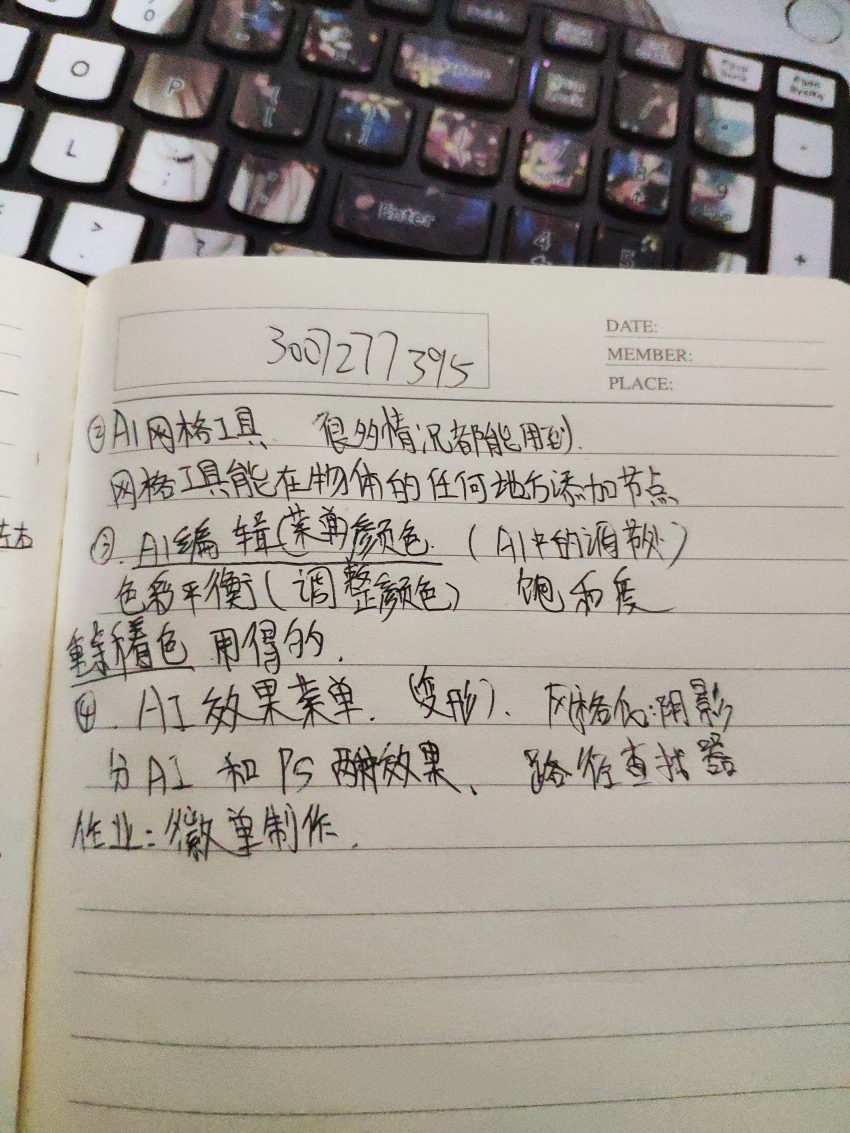 O
P
L
:
;
>
?
Enter
4
5
-
+
3007277395
DATE:
MEMBER:
PLACE:
② AI网格工具 很多情况都能用到.
网格工具能在物体的任何地方添加节点
左右
③. AI编辑(菜单)颜色. (AI中的调节处)
色彩平衡(调整颜色) 饱和度
重新着色 用得的.
④. AI效果菜单. (变形). 风格化:阴影
分AI和PS两种效果、 路径查找器
作业:徽章制作.